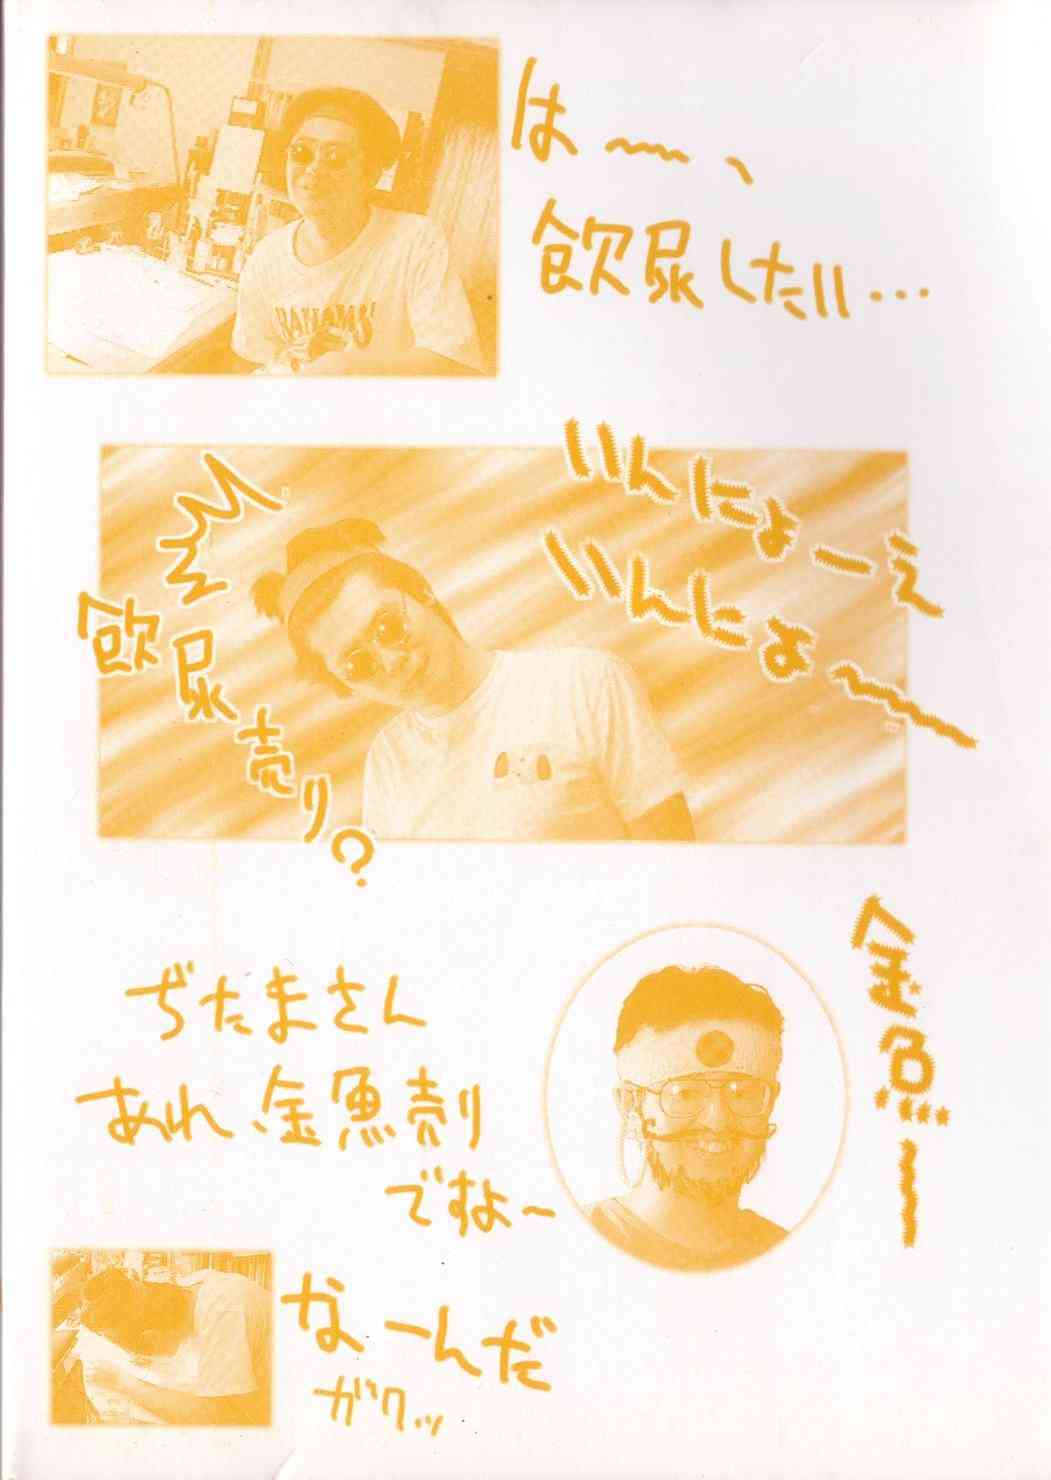 は～、
飲尿したい…
いんにょーえ
いんにょ～
飲尿売り？
金魚ー
ぢたまさん
あれ金魚売り
ですよ～
なーんだ
ガクッ